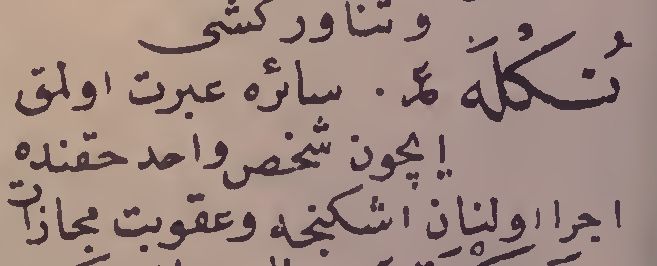 وتناور كشى
نُكْلَة ع. سائره عبرت اولمق
ايچون شخص واحد حقنده
اجرا اولنان اشكنجه وعقوبت مجازات